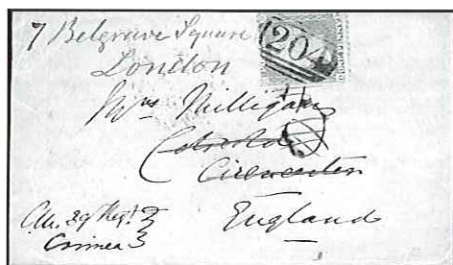 7 Belgrave Square
London
204
Mrs Milligan
Cirencester
England
39 Regt
Crimea